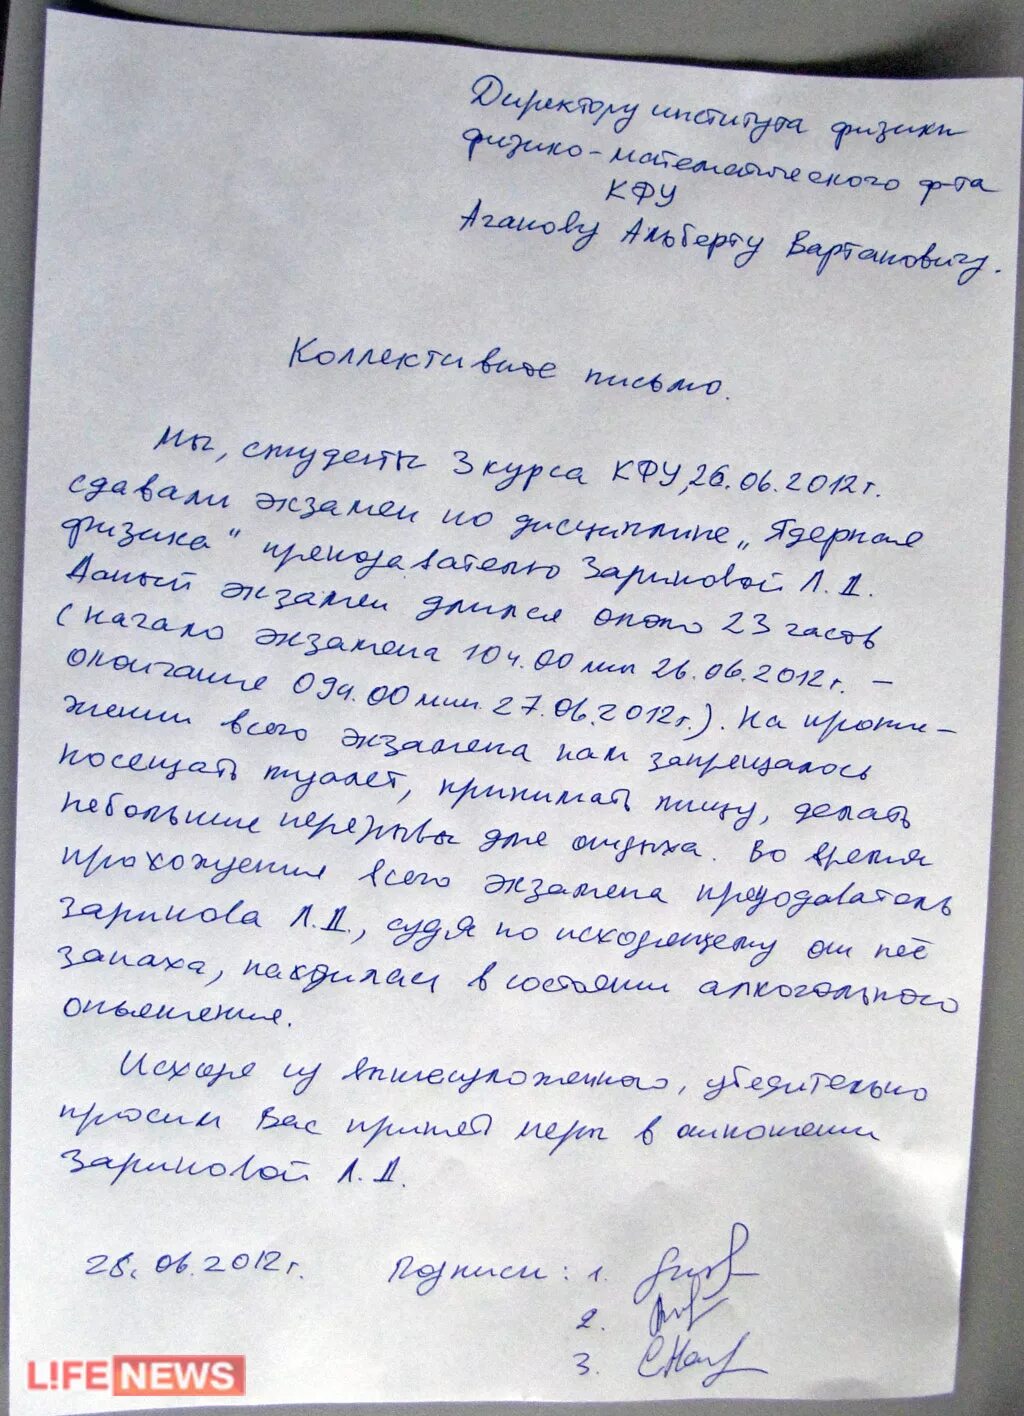 Директору института физики
физико-математического ф-та
КФУ
Аганову Альберту Вартановичу.
Коллективное письмо.
Мы, студенты 3 курса КФУ, 26.06.2012г.
сдавали экзамен по дисциплине „Ядерная
физика" преподавателю Зариповой Л.Д.
Даный экзамен длился около 23 часов
(начало экзамена 10ч.00мин 26.06.2012г. –
окончание 09ч.00мин. 27.06.2012г.). На протя-
жении всего экзамена нам запрещалось
посещать туалет, принимать пищу, делать
небольшие перерывы для отдыха. Во время
прохождения всего экзамена преподаватель
Зарипова Л.Д., судя по исходящему от неё
запаха, находилась в состоянии алкогольного
опьянения.
Исходя из вышеизложенного, убедительно
просим Вас принять меры в отношении
Зариповой Л.Д.
28.06.2012г. Подписи: 1.
2.
3.
L!FENEWS